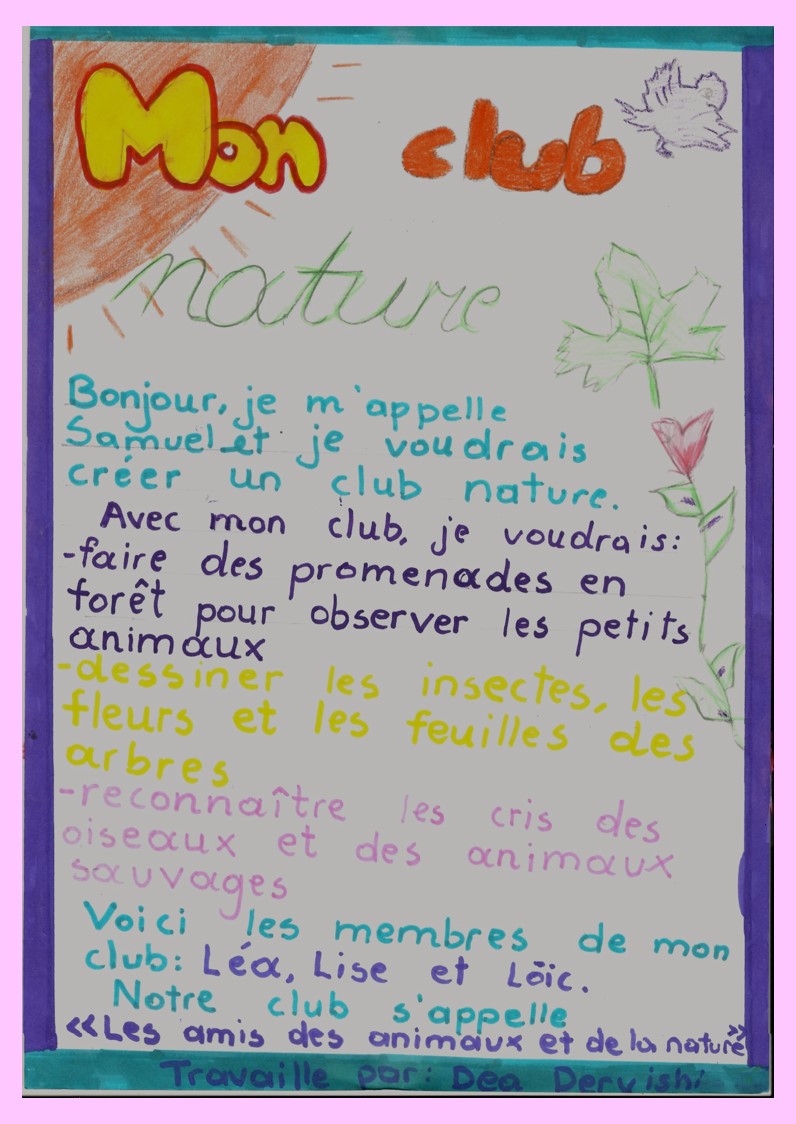 Mon club
nature
Bonjour, je m'appelle
Samuel et je voudrais
créer un club nature.
Avec mon club, je voudrais:
-faire des promenades en
forêt pour observer les petits
animaux
-dessiner les insectes, les
fleurs et les feuilles des
arbres
-reconnaître les cris des
oiseaux et des animaux
sauvages
Voici les membres de mon
club: Léa, Lise et Loïc.
Notre club s'appelle
«Les amis des animaux et de la nature»
Travaille par: Dea Dervishi